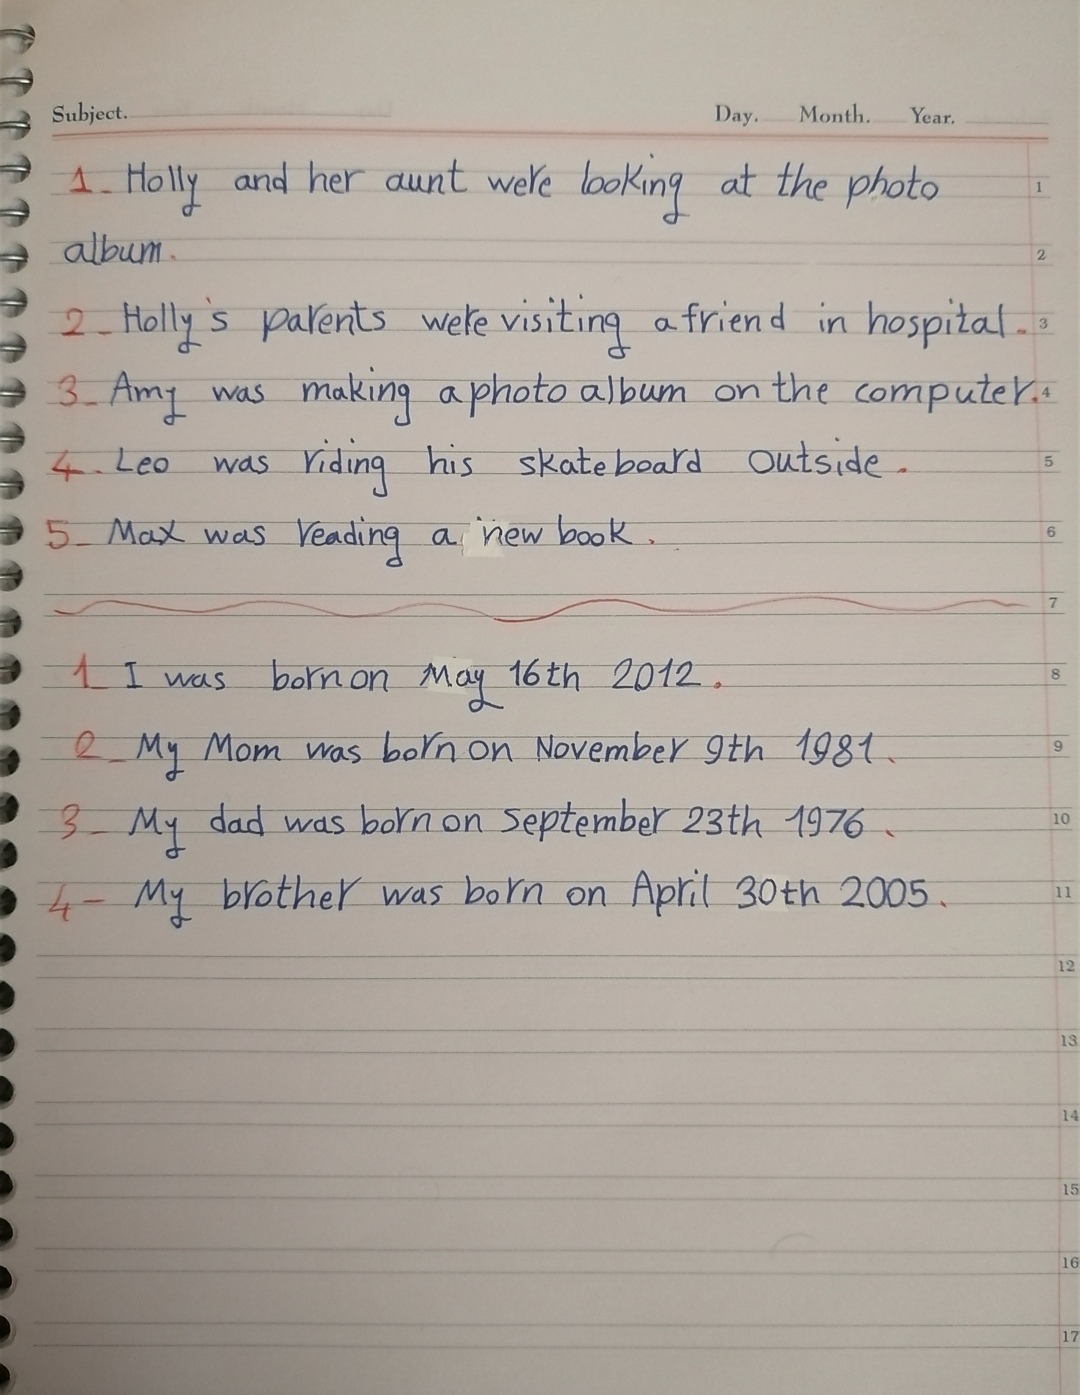 Subject. Day. Month. Year.
1- Holly and her aunt were looking at the photo 1
album. 2
2- Holly's parents were visiting a friend in hospital. 3
3- Amy was making a photo album on the computer. 4
4- Leo was riding his skateboard outside. 5
5- Max was reading a new book. 6
7
1- I was born on May 16th 2012. 8
2- My Mom was born on November 9th 1981. 9
3- My dad was born on September 23th 1976. 10
4- My brother was born on April 30th 2005. 11
12
13
14
15
16
17